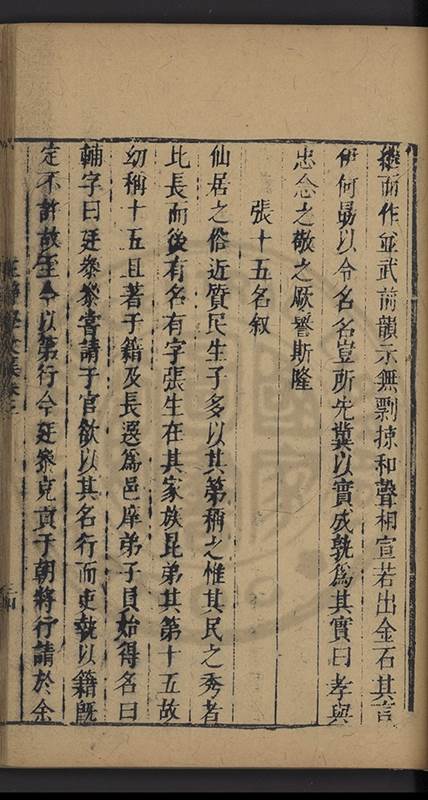 繼而作並武前韻示無剽掠和聲相宣若出金石其言
伊何曷以令名名豈所先冀以實成孰爲其實曰孝與
忠念之敬之厥譽斯隆
張十五名叙
仙居之俗近質民生子多以其第稱之惟其民之秀者
比長而後有名有字張生在其家族昆弟其第十五故
幼稱十五且著于籍及長選爲邑庠弟子員始得名曰
輔字曰廷
嘗請于官欲以其名行而吏執以籍既
定不許故至今以第行今廷
克貢于朝將行請於余